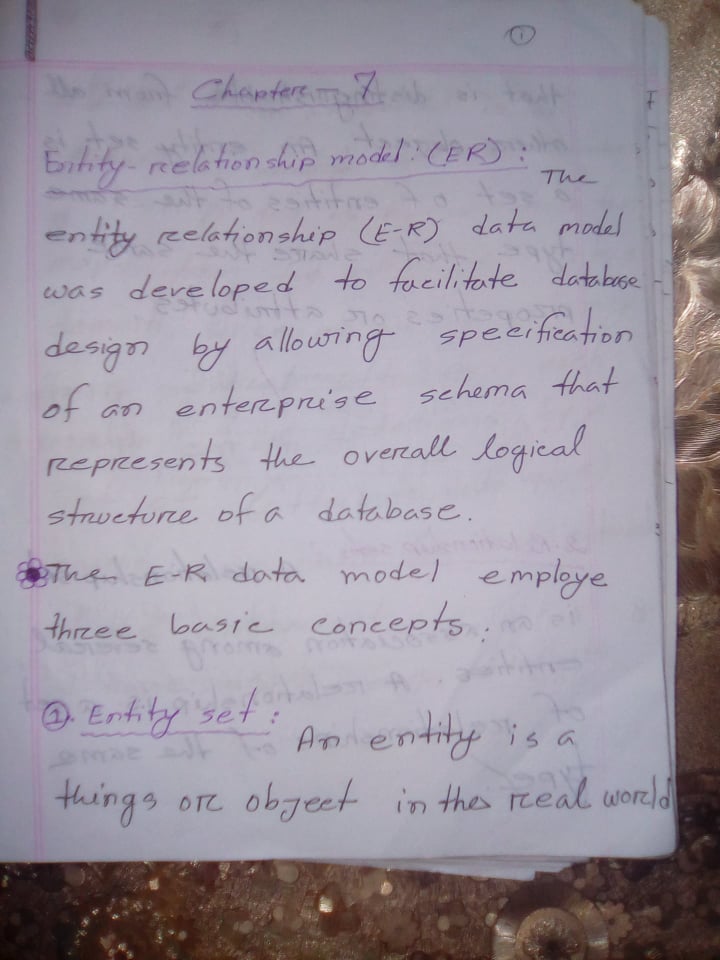 1
Chapter - 7
Entity-relationship model: (ER): The
entity relationship (E-R) data model
was developed to facilitate database
design by allowing specification
of an enterprise schema that
represents the overall logical
structure of a database.
The E-R data model employe
three basic concepts:
①. Entity set: An entity is a
things or object in the real world